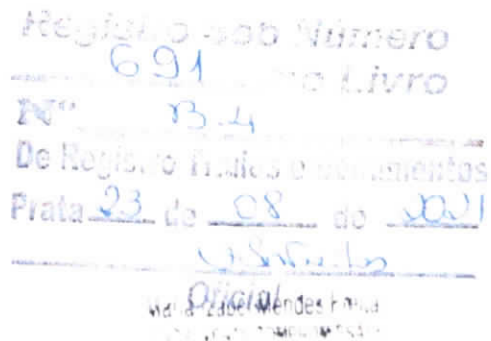 Registro sob Número
691 no Livro
Nº B-4
De Registro Títulos e Documentos
Prata 23 de 08 de 2021
Oficial
Mendes